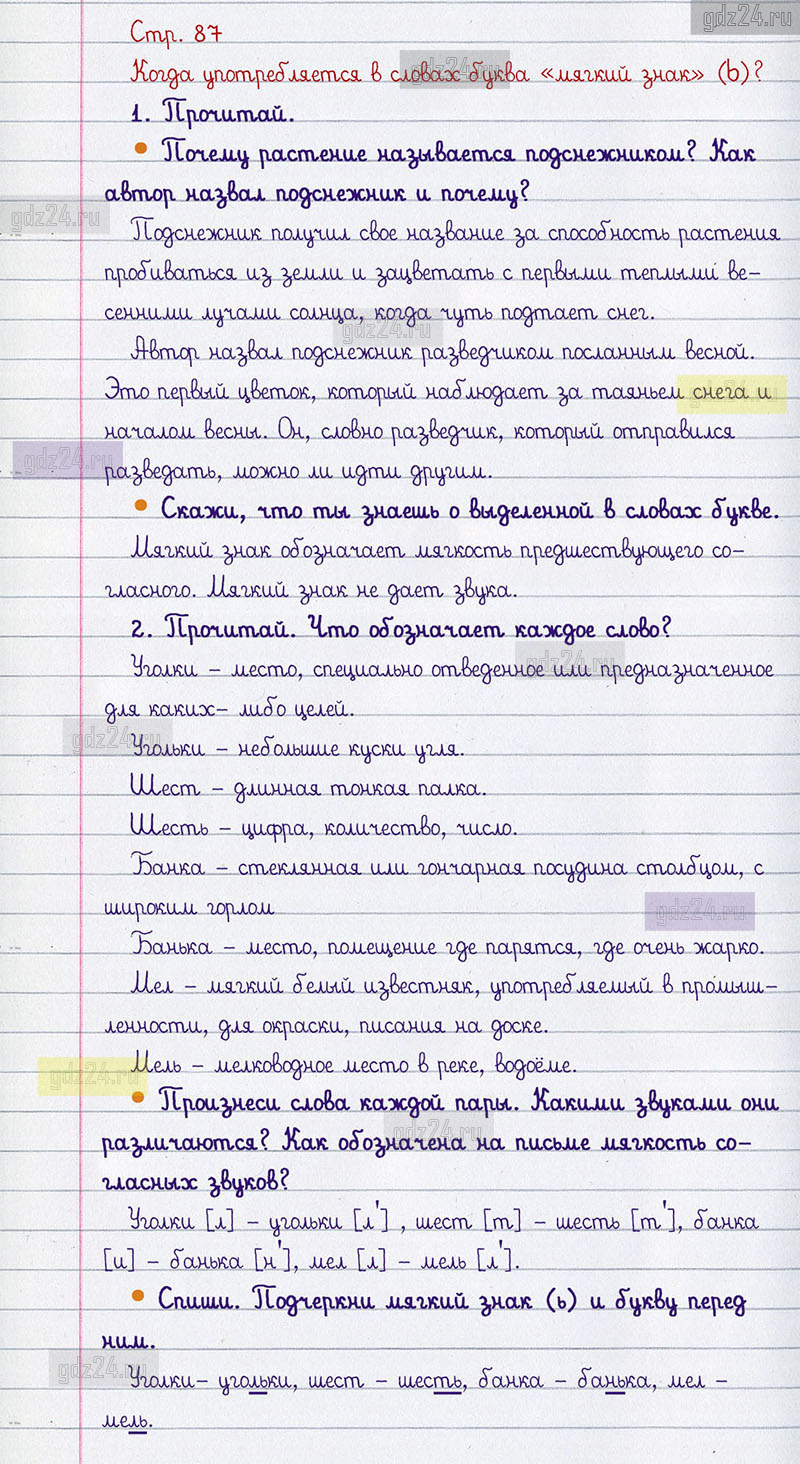 gdz24.ru
Стр. 87
Когда употребляется в словах буква «мягкий знак» (ь)?
gdz24.ru
1. Прочитай.
• Почему растение называется подснежником? Как
автор назвал подснежник и почему?
gdz24.ru
Подснежник получил свое название за способность растения
пробиваться из земли и зацветать с первыми теплыми ве-
сенними лучами солнца, когда чуть подтает снег.
gdz24.ru
Автор назвал подснежник разведчиком посланным весной.
Это первый цветок, который наблюдает за таяньем снега и
gdz24.ru
началом весны. Он, словно разведчик, который отправился
gdz24.ru
разведать, можно ли идти другим.
• Скажи, что ты знаешь о выделенной в словах букве.
Мягкий знак обозначает мягкость предшествующего со-
гласного. Мягкий знак не дает звука.
2. Прочитай. Что обозначает каждое слово?
gdz24.ru
Уголки – место, специально отведенное или предназначенное
для каких- либо целей.
gdz24.ru
Угольки – небольшие куски угля.
Шест – длинная тонкая палка.
Шесть – цифра, количество, число.
Банка – стеклянная или гончарная посудина столбцом, с
широким горлом
gdz24.ru
Банька – место, помещение где парятся, где очень жарко.
Мел – мягкий белый известняк, употребляемый в промыш-
ленности, для окраски, писания на доске.
Мель – мелководное место в реке, водоёме.
gdz24.ru
• Произнеси слова каждой пары. Какими звуками они
gdz24.ru
различаются? Как обозначена на письме мягкость со-
гласных звуков?
Уголки [л] – угольки [л'] , шест [т] – шесть [т'], банка
[и] – банька [н'], мел [л] – мель [л'].
• Спиши. Подчеркни мягкий знак (ь) и букву перед
ним.
gdz24.ru
Уголки– угольки, шест – шесть, банка – банька, мел –
мель.